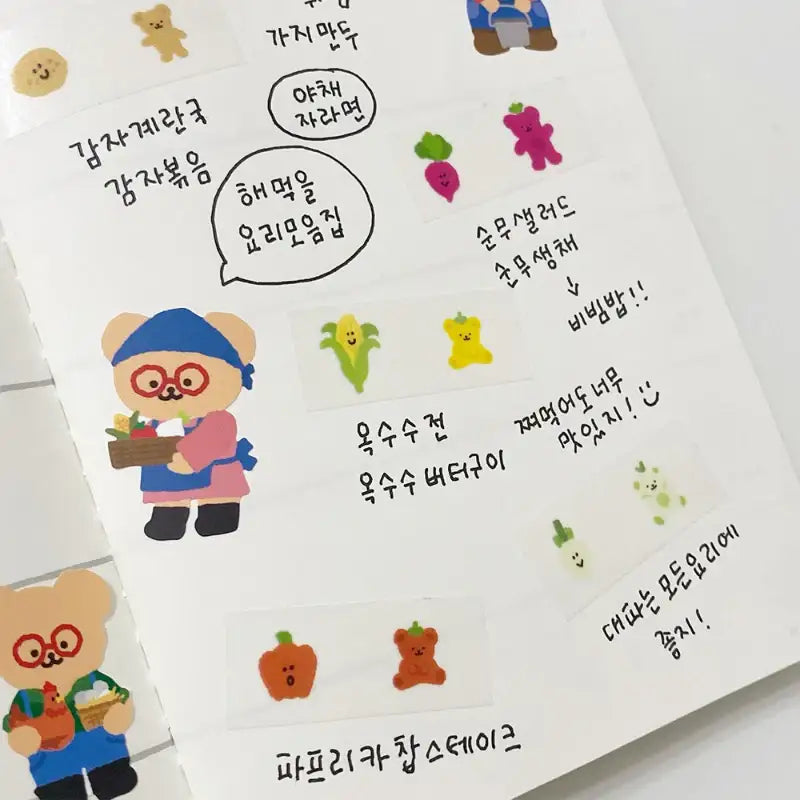 가지만두
야채
자라면
감자계란국
감자볶음
해먹을
요리모음집
순무샐러드
순무생채
↓
비빔밥!!
옥수수전
옥수수버터구이
쪄먹어도너무
맛있지!
대파는모든요리에
좋지!
파프리카찹스테이크